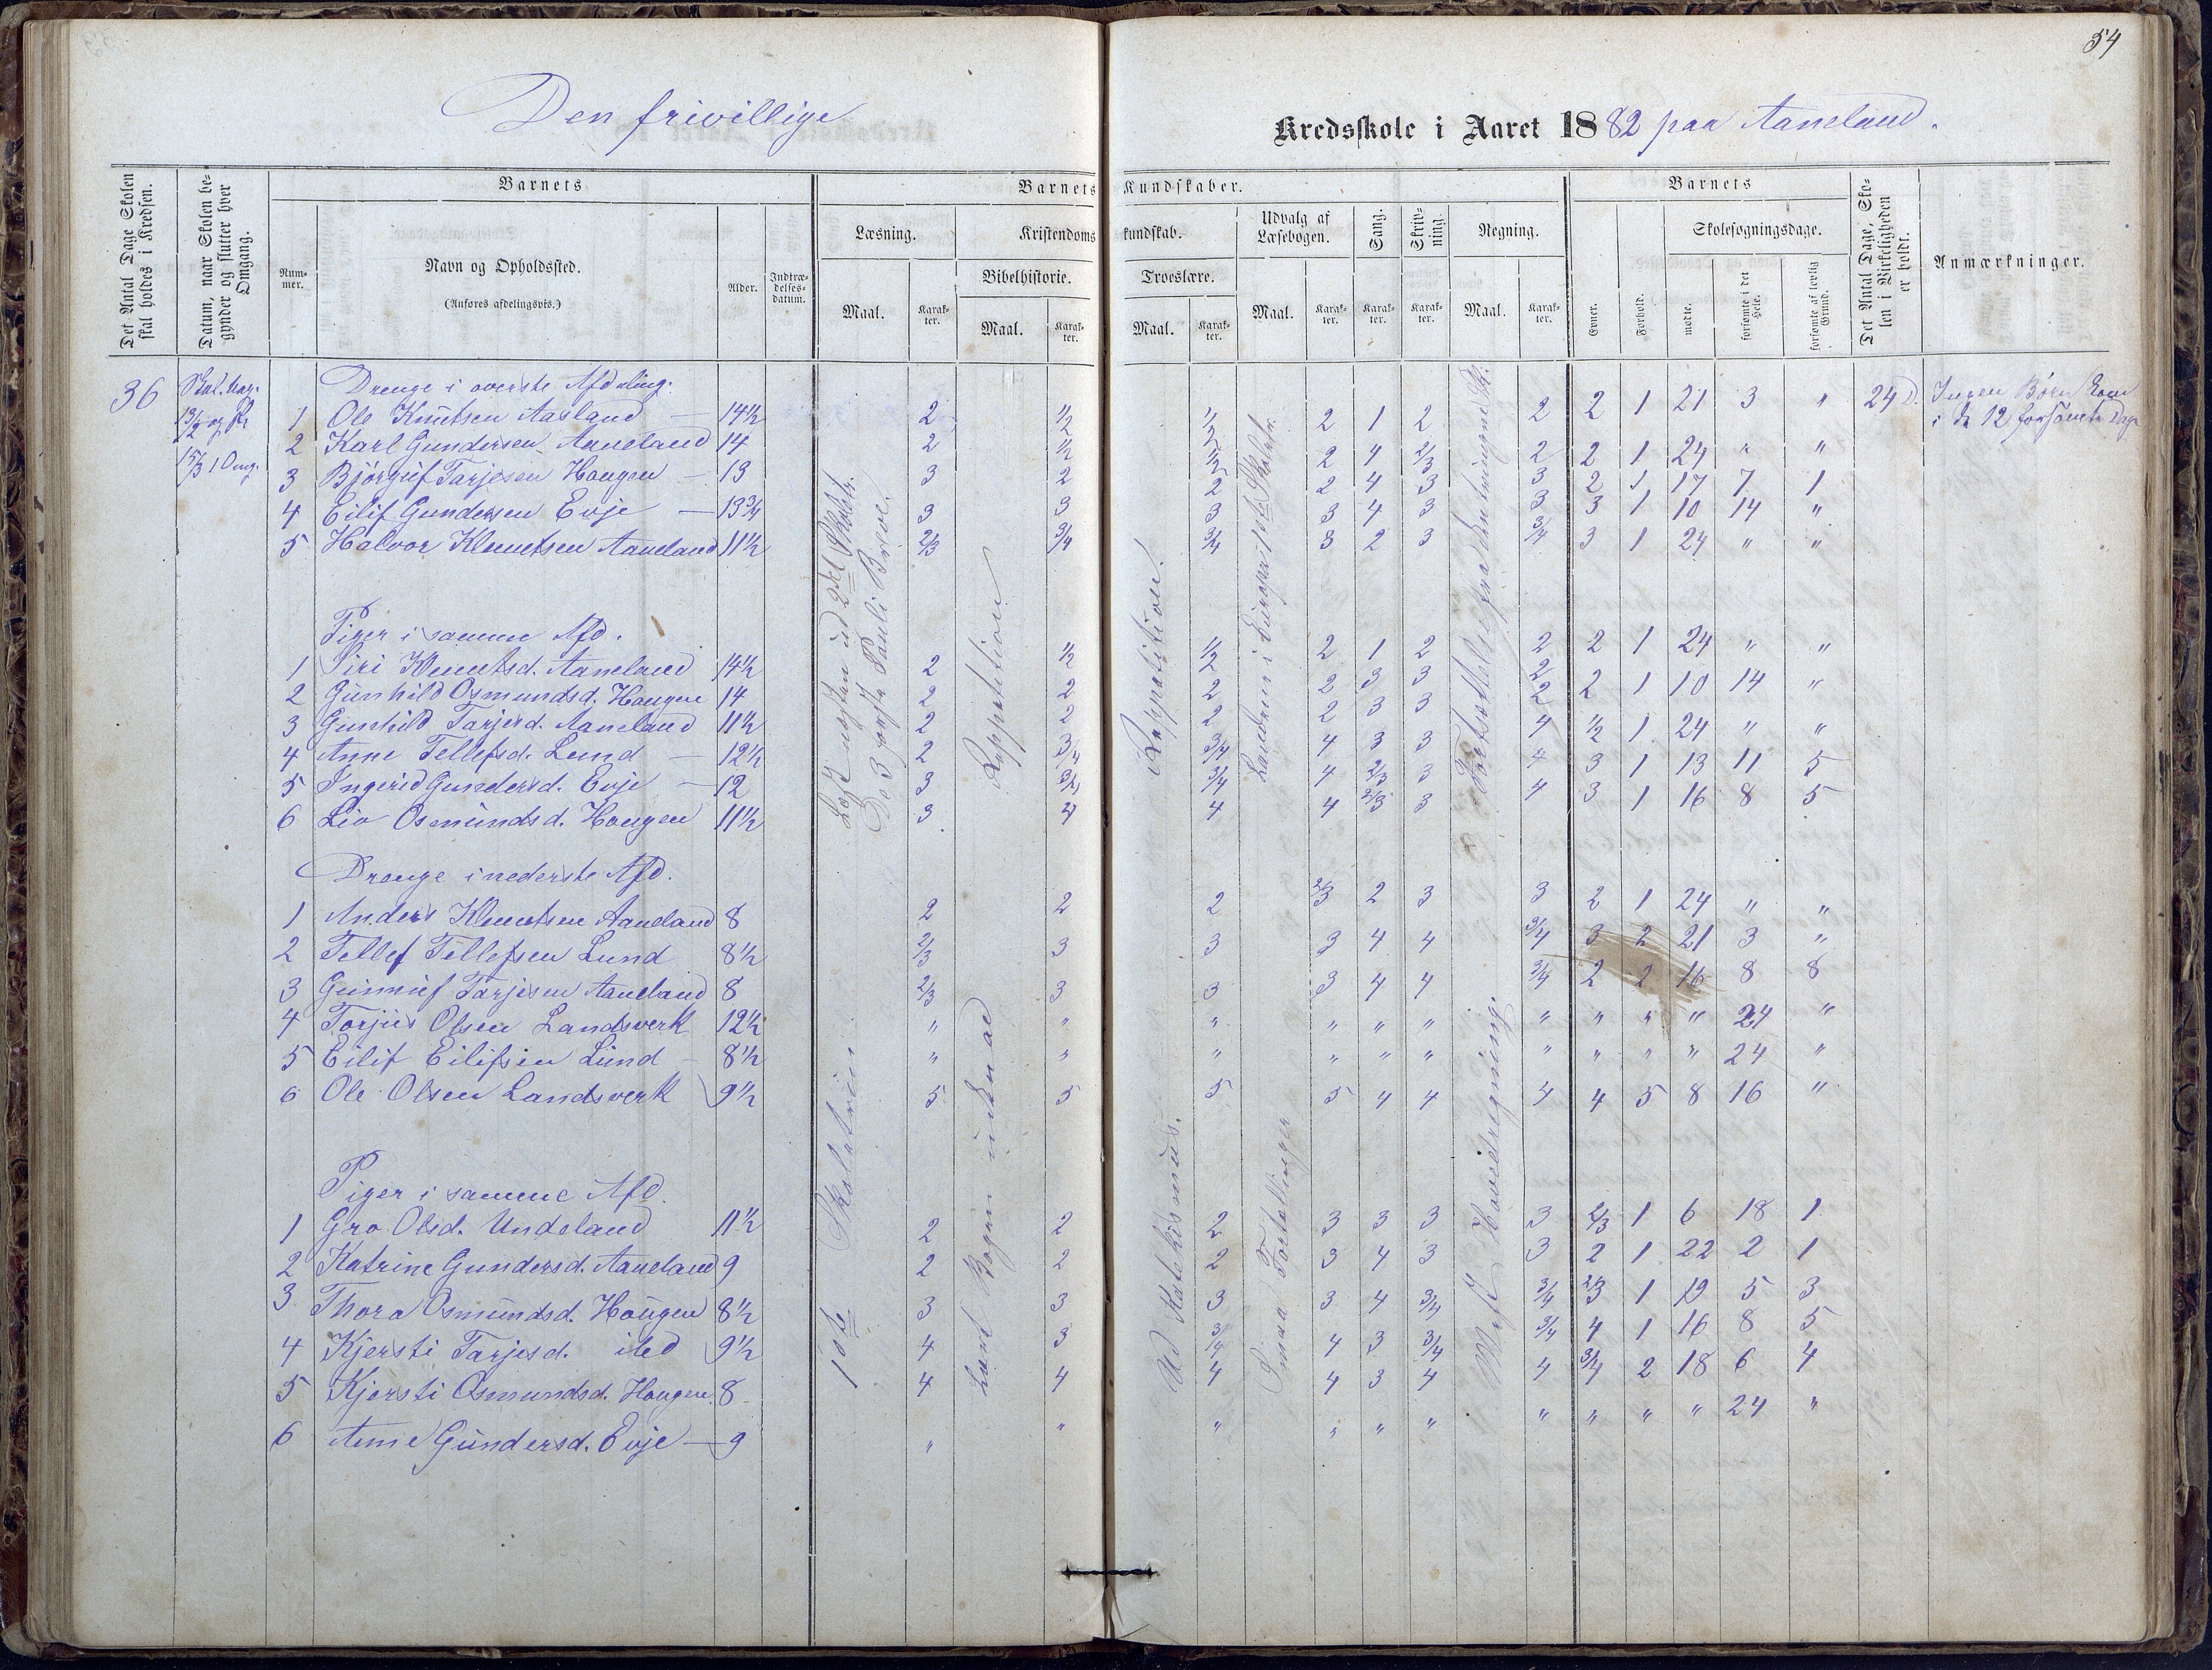 54
Den frivillige Kredsskole i Aaret 1882 paa Aaneland.
Det Antal Dage Skolen skal holdes i Kredsen.
Datum, naar Skolen begynder og slutter hver Omgang.
Barnets
Nummer.
Navn og Opholdssted.
(Anføres afdelingsvis.)
Alder.
Indtrædelsesdatum.
Barnets Kundskaber.
Læsning.
Maal.
Karakter.
Kristendomskundskab.
Bibelhistorie.
Maal.
Karakter.
Troeslære.
Maal.
Karakter.
Udvalg af Læsebogen.
Maal.
Karakter.
Sang.
Karakter.
Skrivning.
Karakter.
Regning.
Maal.
Karakter.
Barnets
Evner.
Forhold.
Skolesøgningsdage.
mødte.
forsømte i det Hele.
forsømte af lovlig Grund.
Det Antal Dage, Skolen i Virkeligheden er holdt.
Anmærkninger.
36
24 D.
Ingen Børn kom
i de 12 forsømte Dage
Drenge i øverste Afdeling.
1 Ole Knutsen Aasland — 14½ 2 1/2 1/2 2 1 2 2 2 1 21 3 "
2 Karl Gundersen Aaneland 14 2 1/2 1/2 2 4 2/3 2 2 1 24 " "
3 Bjørguf Tarjesen Hougen — 13 3 2 2 2 4 3 3 2 1 17 7 1
4 Eilif Gundersen Evje — 13¾ 3 3 3 3 4 3 3 3 1 10 14 "
5 Halvor Klemetsen Aaneland 11½ 2/3 3/4 3/4 3 2 3 3/4 3 1 24 " "
Piger i samme Afd.
1 Siri Klemetsd. Aaneland 14½ 2 1/2 1/2 2 1 2 2 2 1 24 " "
2 Gunhild Osmundsd. Hougen 14 2 2 2 2 3 3 2 2 1 10 14 "
3 Gunhild Tarjesd. Aaneland 11½ 2 2 2 2 3 3 2 1/2 1 24 " "
4 Anne Tellefsd. Lund — 12½ 2 3/4 3/4 4 3 3 4 3 1 13 11 5
5 Ingerid Gundersd. Evje — 12 3 3/4 3/4 4 2/3 3 4 3 1 16 8 5
6 Liv Osmundsd. Hougen 11½ 3 4 4 4 2/3 3 4
Repetition
Repetition.
Landene i Europa 1ste Skoletr.
Drenge i nederste Afd.
1 Anders Klemetsen Aaneland 8 2 2 2 2/3 2 3 3 2 1 24 " "
2 Tellef Tellefsen Lund 8½ 2/3 3 3 3 4 4 3/4 3 2 21 3 "
3 Gunnuf Tarjesen Aaneland 8 2/3 3 3 3 4 4 3/4 2 2 16 8 8
4 Torjus Olsen Landsverk 12½ " " " " " " " " " " 24 "
5 Eilif Eilifsen Lund — 8½ " " " " " " " " " " 24 "
6 Ole Olsen Landsverk 9½ 5 5 5 5 4 4 4 4 5 8 16 "
Piger i samme Afd.
1 Gro Olsd. Undeland 11½ 2 2 2 3 3 3 3 2/3 1 6 18 1
2 Katrine Gundersd. Aaneland 9 2 2 2 3 4 3 3 2 1 22 2 1
3 Thora Osmundsd. Hougen 8½ 3 3 3 3 4 3/4 3/4 2/3 1 19 5 3
4 Kjersti Tarjesd. ibd 9½ 4 3 3/4 4 3 3/4 3/4 4 1 16 8 5
5 Kjersti Osmundsd. Hougen 8 4 4 4 4 3 4 4 3/4 2 18 6 4
6 Anne Gundersd. Evje — 9 " " " " " " " " " " 24 "
1ste Skoletrin
Lært Bogen indenad
Katekismus.
Smaa Fortællinger
Hovedregning